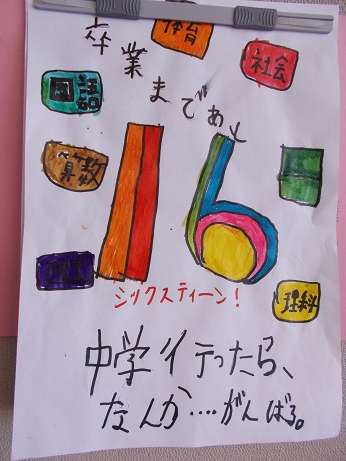 体育
卒業まであと
社会
国語
算数
16
理科
シックスティーン!
中学行ったら、
なんか…がんばる。